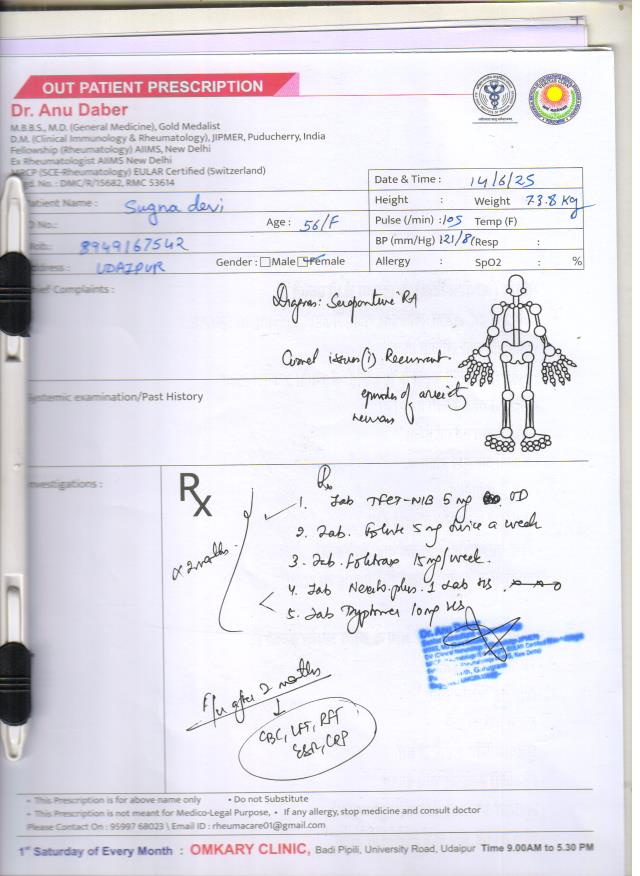 OUT PATIENT PRESCRIPTION
Dr. Anu Daber
M.B.B.S., M.D. (General Medicine), Gold Medalist
D.M. (Clinical Immunology & Rheumatology), JIPMER, Puducherry, India
Fellowship (Rheumatology) AIIMS, New Delhi
Ex Rheumatologist AIIMS New Delhi
MRCP (SCE-Rheumatology) EULAR Certified (Switzerland)
No.: DMC/R/15682, RMC 53614
Date & Time : 14/6/25
Patient Name : Sugna devi
Height : Weight 73.8 Kg
No.: Age : 56/F
Pulse (/min) : 105 Temp (F)
Mob.: 8949167542
BP (mm/Hg) 121/8 Resp :
Address : UDAIPUR
Gender : Male Female
Allergy : SpO2 : %
Chief Complaints :
Diagnosis: Seropositive RA
Current issues (1) Recurrent
episodes of anxiety
Systemic examination/Past History
Investigations :
Rx
Rx
1. Tab TFCT-NIB 5 mg OD
2. Tab. Folvite 5 mg twice a week
3. Tab. Folitrax 15 mg/week.
4. Tab Nexito plus 1 tab HS
5. Tab Tryptomer 10 mg HS
x 2 months
Dr. Anu Daber
F/u after 2 months
CBC, LFT, RFT
ESR, CRP
• This Prescription is for above name only • Do not Substitute
• This Prescription is not meant for Medico-Legal Purpose, • If any allergy, stop medicine and consult doctor
Please Contact On : 95997 68023 \ Email ID : rheumacare01@gmail.com
1st Saturday of Every Month : OMKARY CLINIC, Badi Pipili, University Road, Udaipur Time 9.00AM to 5.30 PM